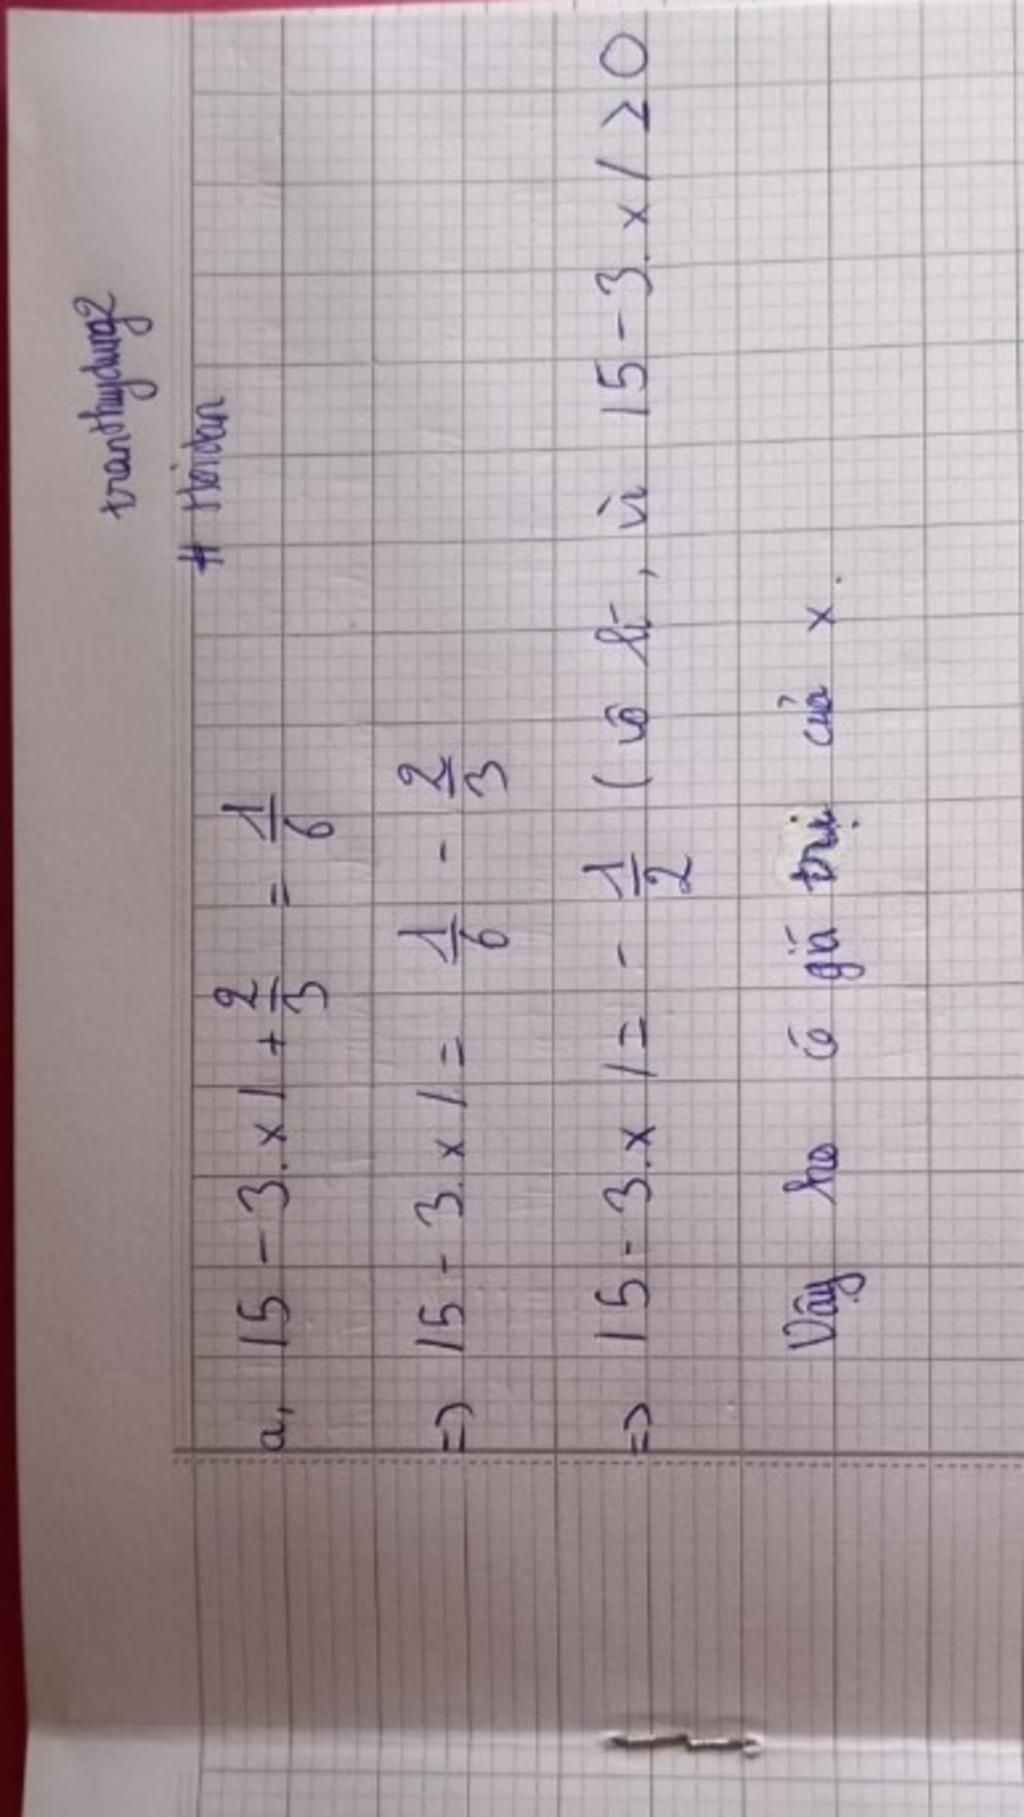 tranthuydung2
# Hoidan
a, |5 - 3.x| + 2/3 = 1/6
=> |5 - 3.x| = 1/6 - 2/3
=> |5 - 3.x| = - 1/2 (vô lí, vì |5 - 3.x| ≥ 0
Vậy ko có giá trị của x.